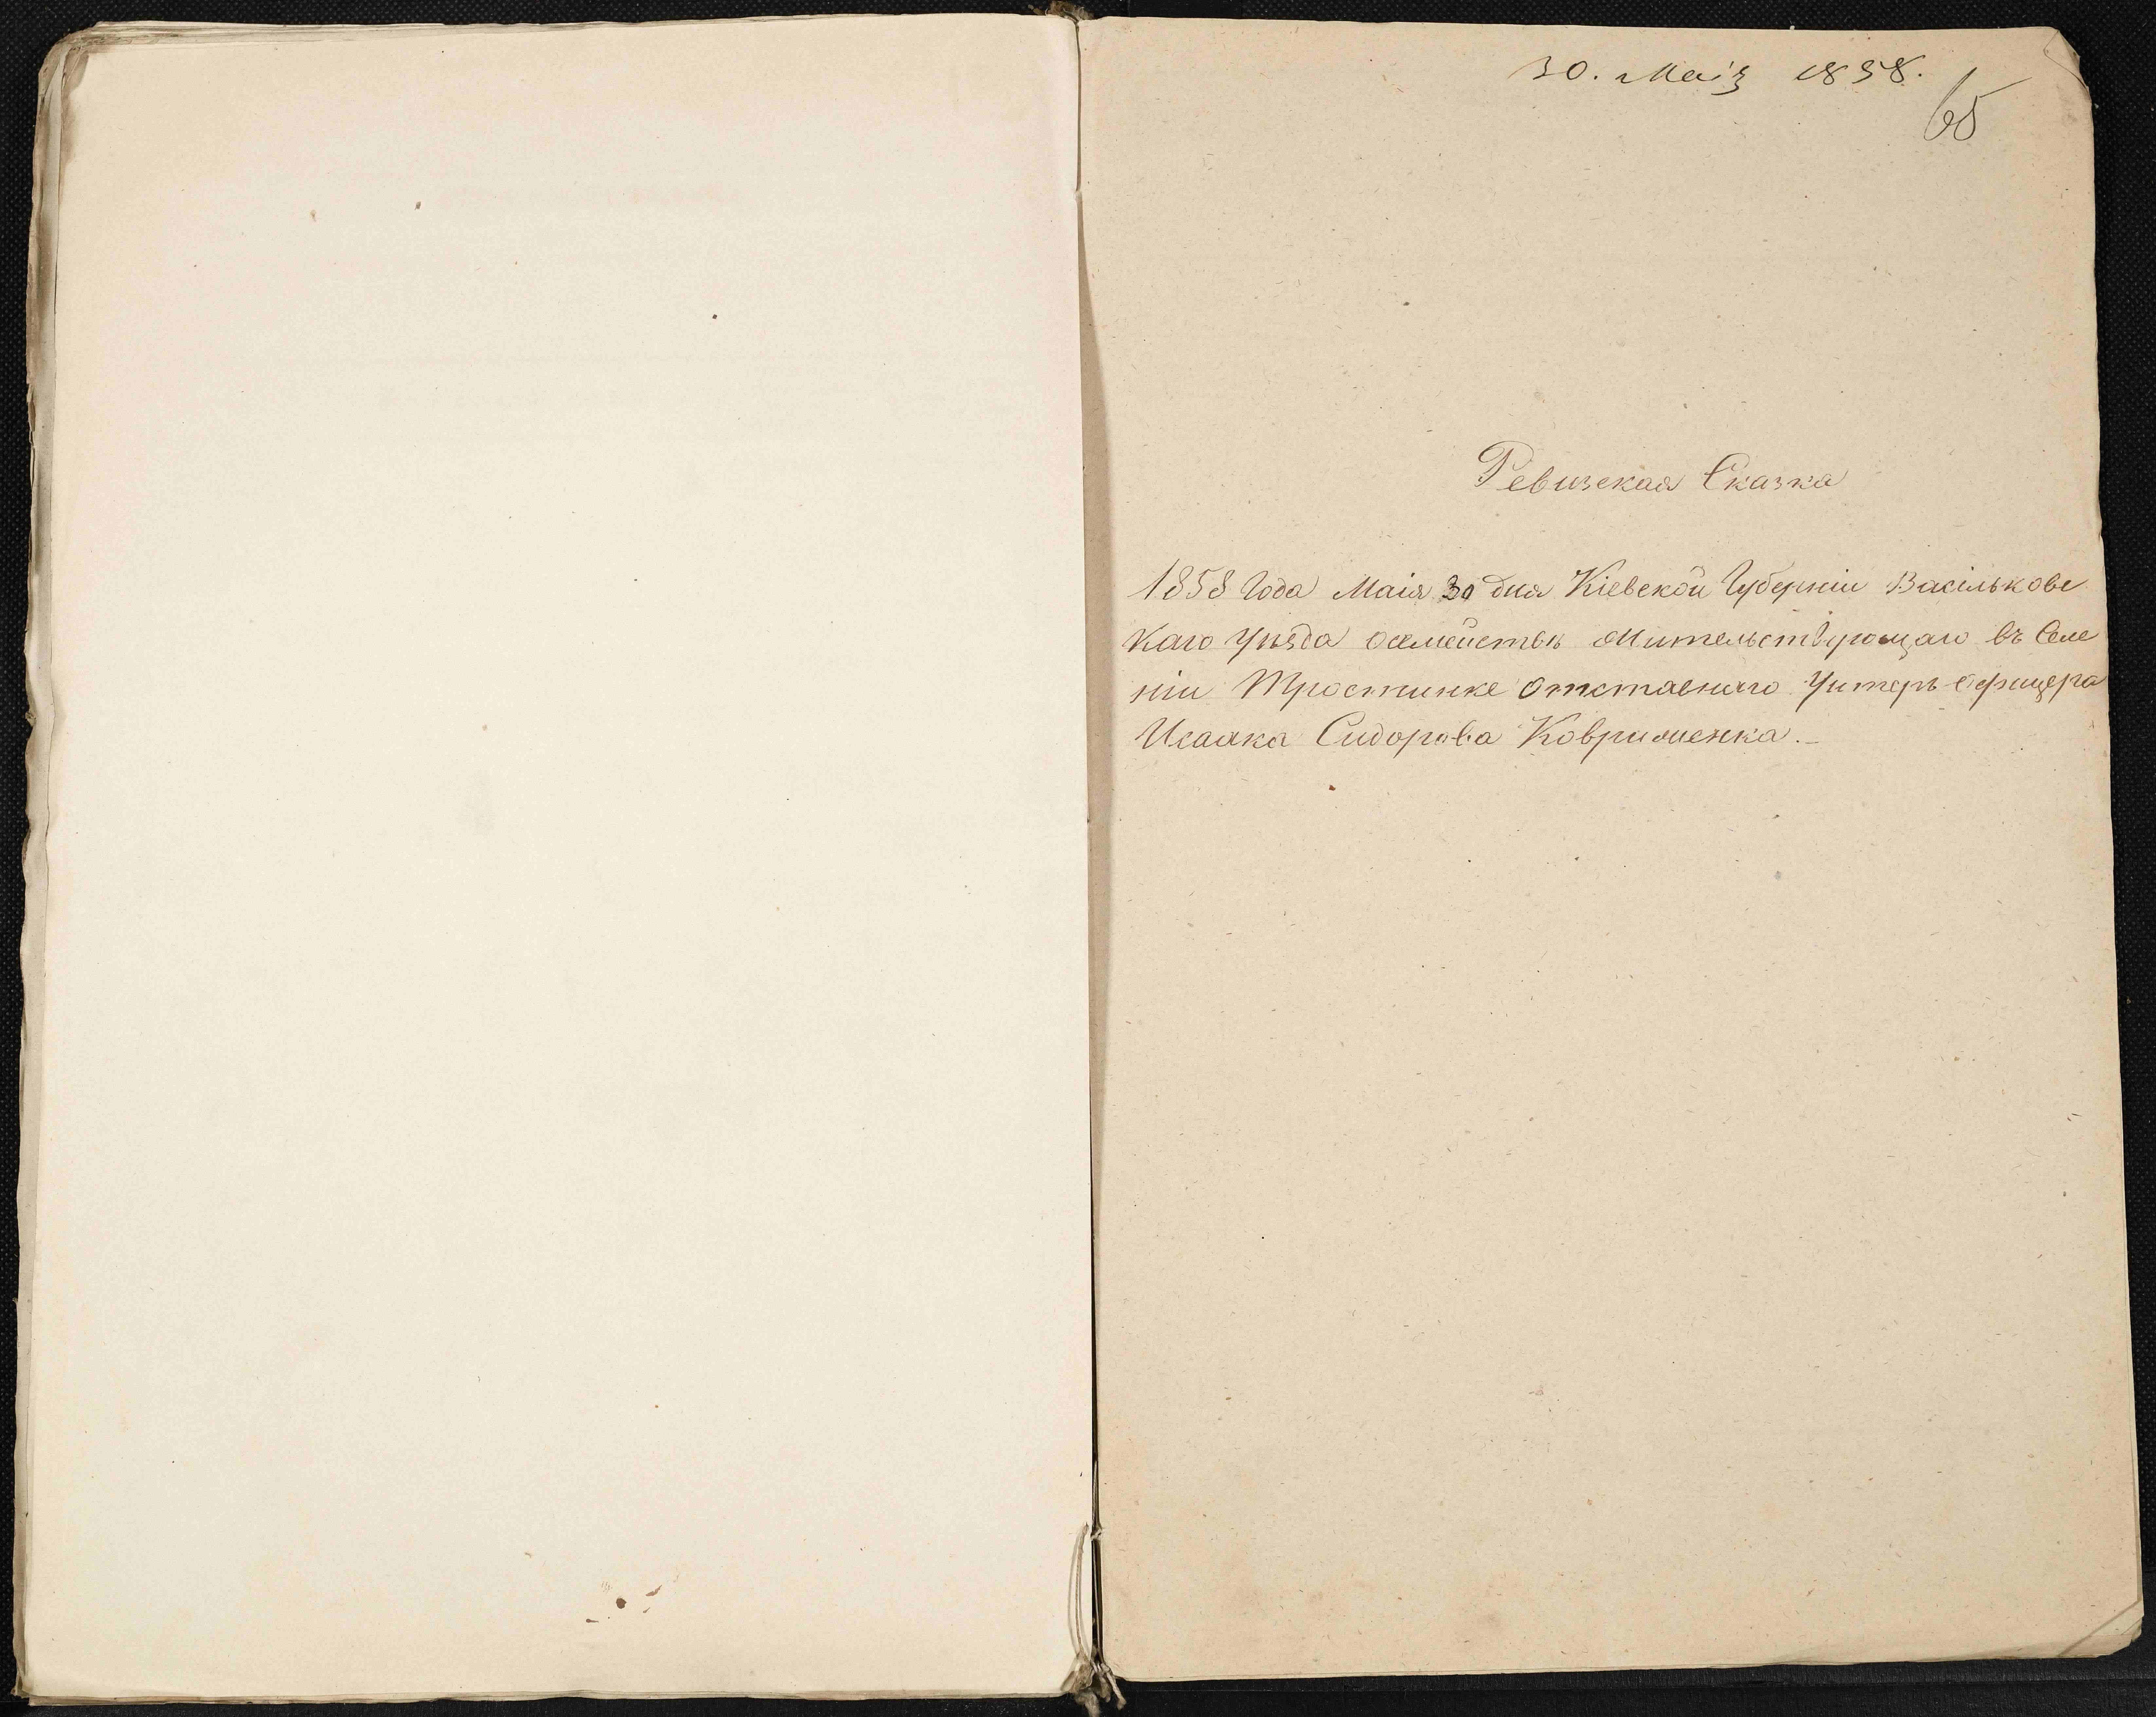 30. Маія 1858.
65
Ревизская Сказка
1858 Года Маія 30 дня Кіевской Губерніи Васильковс
каго Уѣзда о семействѣ Жительствующаго въ Селе
ніи Тростинке Отставнаго Унтеръ-офицера
Исаака Сидорова Ковримченка.